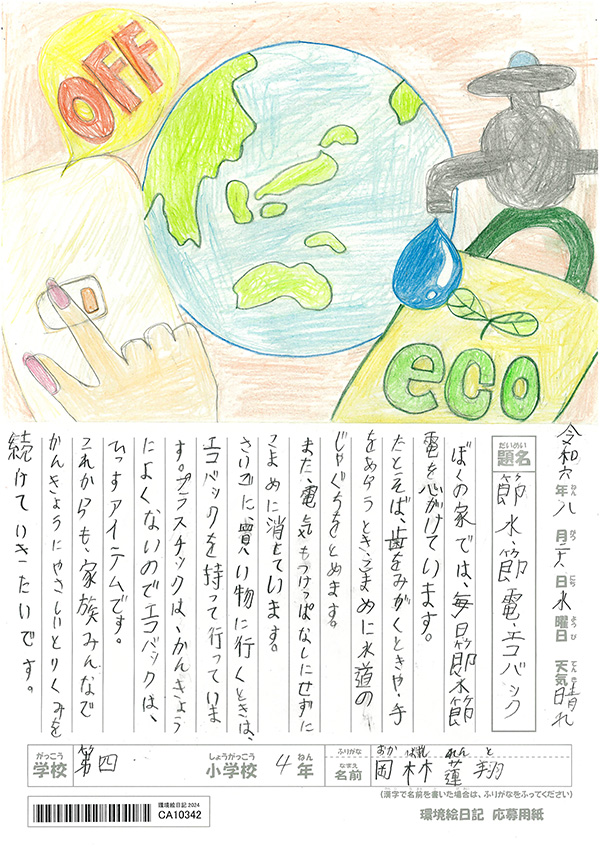 OFF
eco
令和六年八月二八日水曜日 天気晴れ
ねん がつ にち ようび てんき
だいめい
題名 節水・節電・エコバック
ぼくの家では、毎日節水節
電を心がけています。
たとえば、歯をみがくときや、手
をあらうとき、こまめに水道の
じゃぐちをとめます。
また、電気もつけっぱなしにせずに
こまめに消しています。
さいごに、買い物に行くときは、
エコバックを持って行っていま
す。プラスチックは、かんきょう
によくないのでエコバックは、
ひっすアイテムです。
これからも、家族みんなで
かんきょうにやさしいとりくみを
続けていきたいです。
がっこう しょうがっこう ねん
学校 第四 小学校 4年
ふりがな おか ばやし れん と
なまえ
名前 岡林 蓮翔
(漢字で名前を書いた場合は、ふりがなをふってください)
環境絵日記 2024
CA10342
環境絵日記 応募用紙